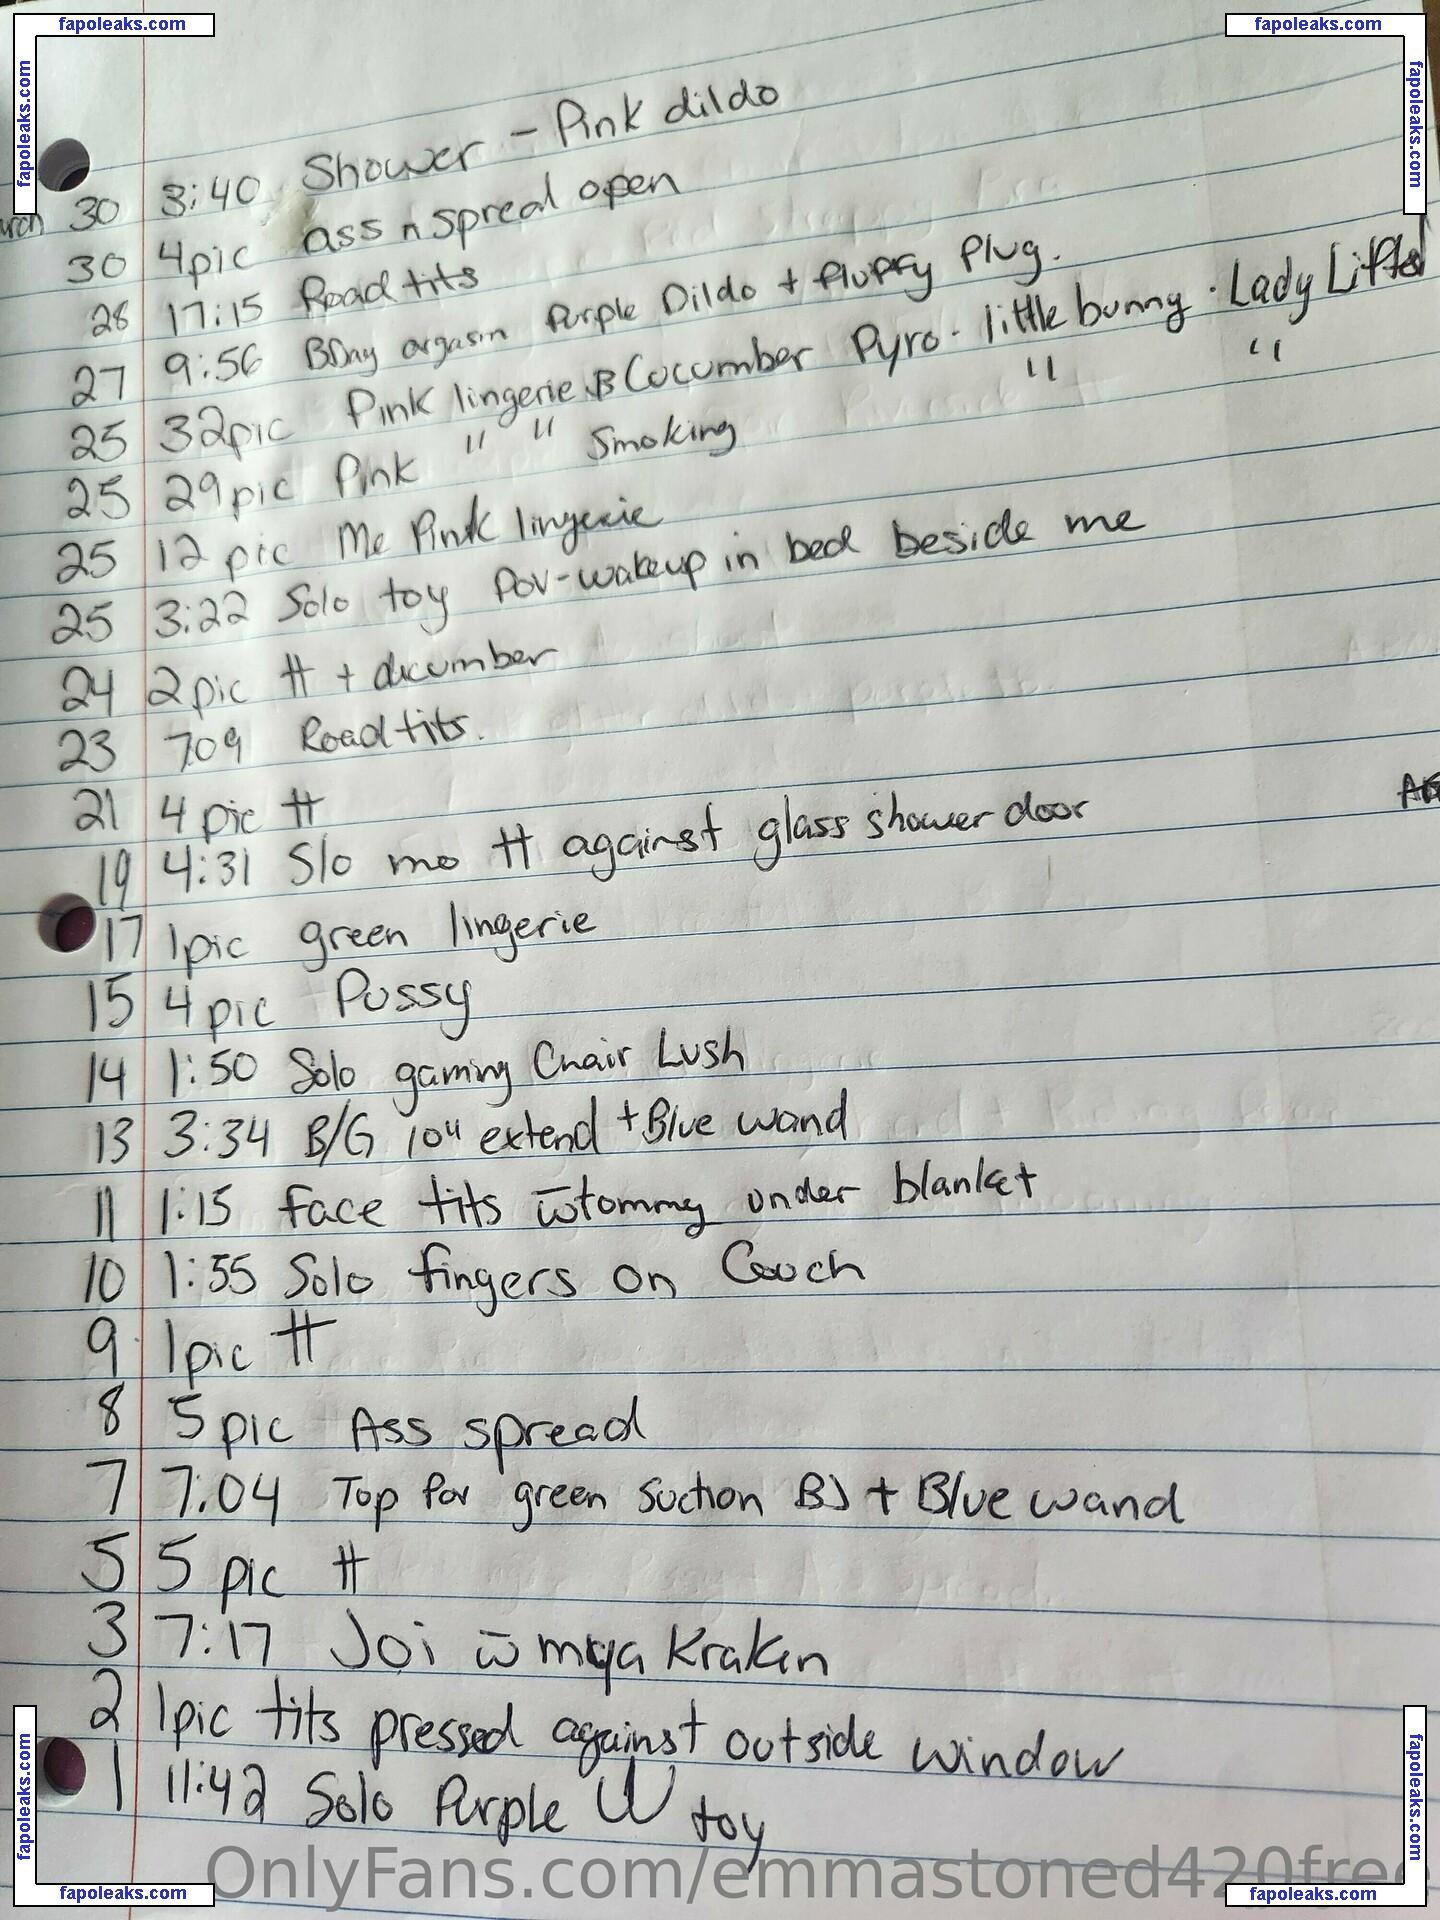 fapoleaks.com
fapoleaks.com
fapoleaks.com
fapoleaks.com
30 3:40 Shower - Pink dildo
30 4pic ass n spread open
28 17:15 Road tits
27 9:56 BDay orgasm Purple Dildo + fluffy Plug.
25 32pic Pink lingerie B Cucumber Pyro · little bunny · Lady Lifted
25 29pic Pink " " Smoking " "
25 12 pic Me Pink lingerie
25 3:22 Solo toy Pov-wakeup in bed beside me
24 2pic tt + cucumber
23 7:09 Road tits.
21 4 pic tt
19 4:31 Slo mo tt against glass shower door
17 1pic green lingerie
15 4pic Pussy
14 1:50 Solo gaming Chair Lush
13 3:34 B/G 10" extend + Blue wand
11 1:15 face tits w̄ tommy under blanket
10 1:55 Solo fingers on Couch
9 1pic tt
8 5pic Ass spread
7 7:04 Top for green suction BJ + Blue wand
5 5 pic tt
3 7:17 Joi w̄ Kraken
2 1pic tits pressed against outside window
1 11:42 Solo Purple W toy
OnlyFans.com/emmastoned420free
fapoleaks.com
fapoleaks.com
fapoleaks.com
fapoleaks.com